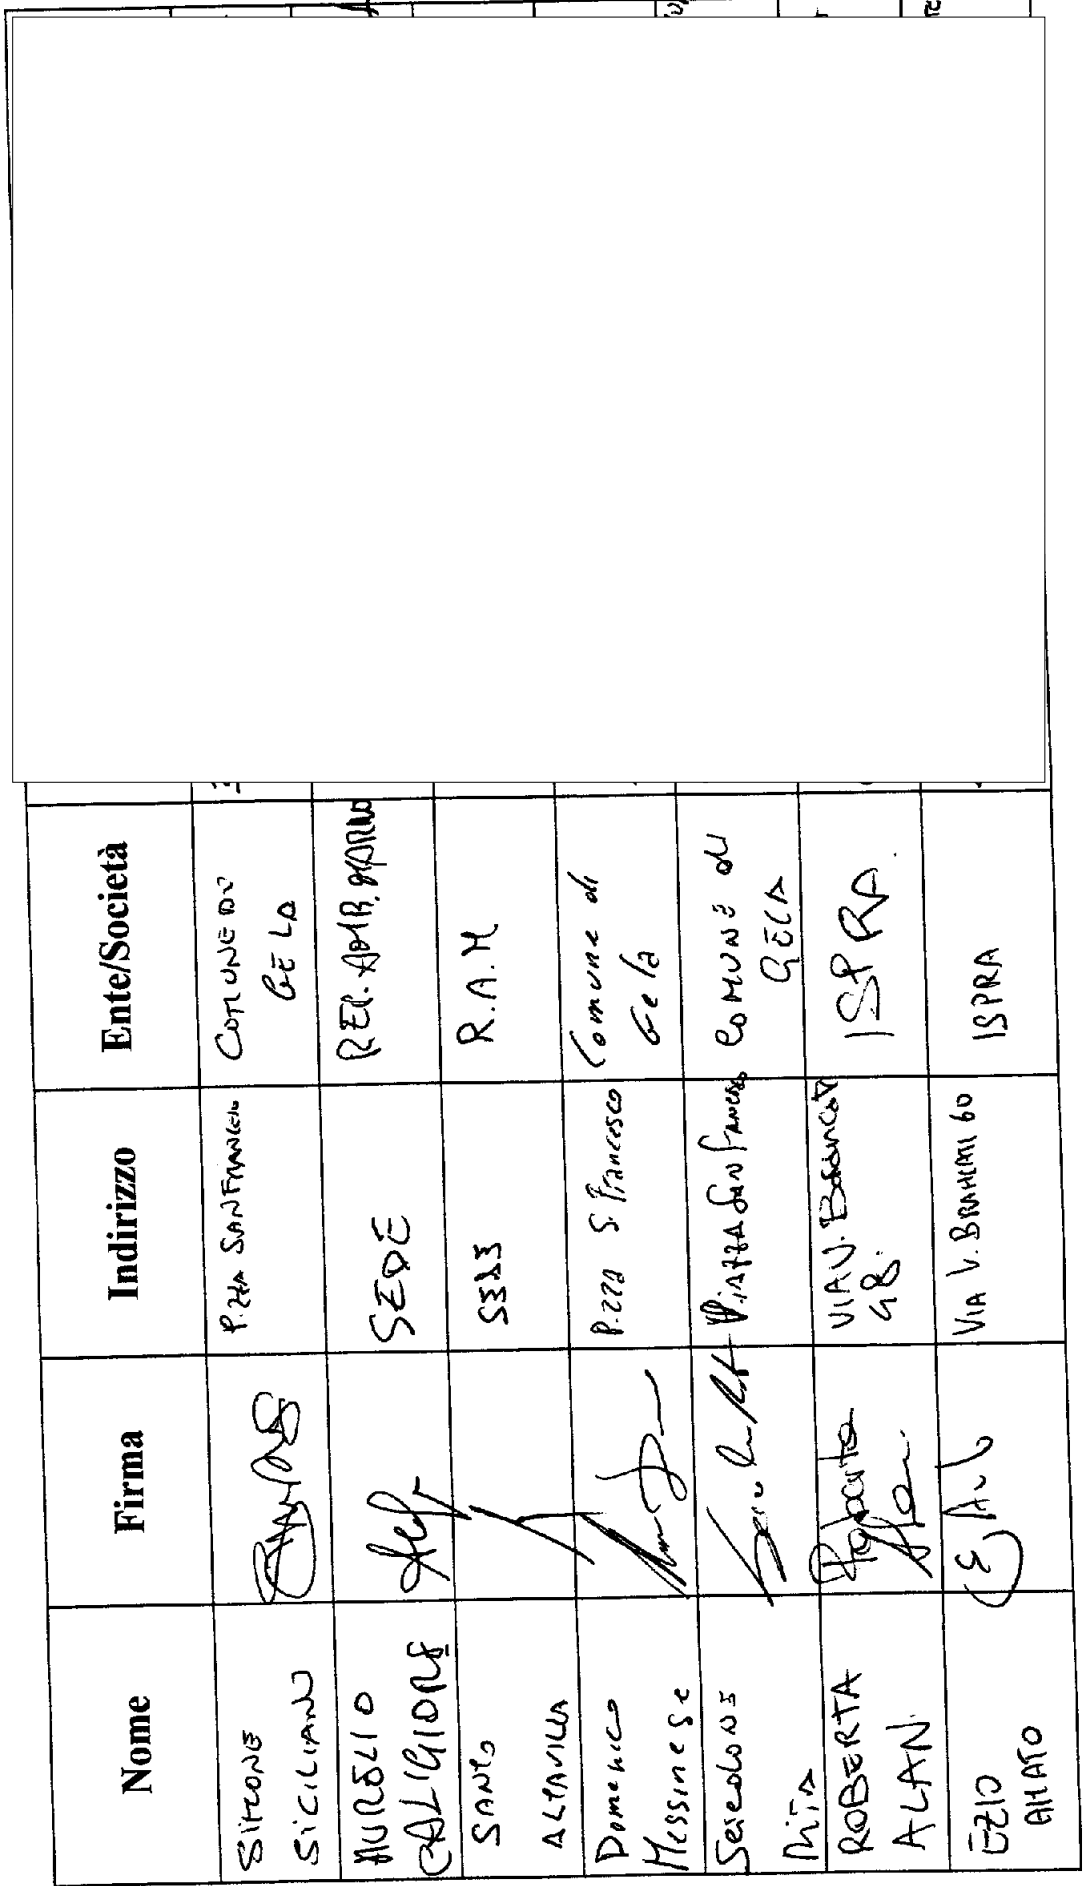 Nome
Firma
Indirizzo
Ente/Società
SIMONE
SICILIANO
P.ZZA SAN FRANCESCO
COMUNE DI
GELA
AURELIO
CALIGIORE
SEDE
REP. AMB. MARINO
SANTO
ALTAVILLA
SEDE
R.A.M
Domenico
Messinese
P.zza S. Francesco
Comune di
Gela
RITA
PIAZZA San Francesco
COMUNE di
GELA
ROBERTA
ALAN.
Roberta
VIA V. Brancati
48.
ISPRA.
EZIO
AMATO
VIA V. BRANCATI 60
ISPRA